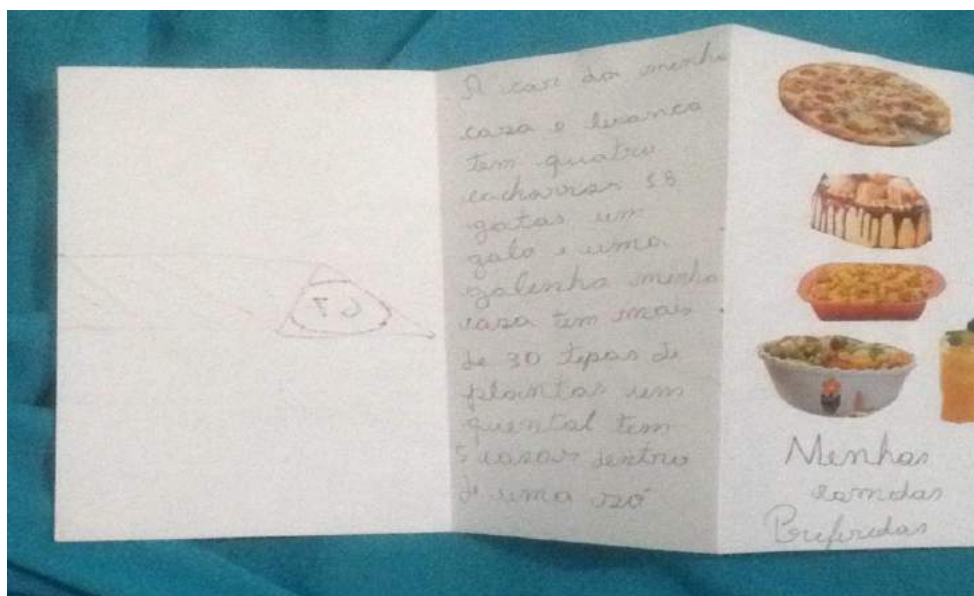 A cor da minha
casa e branca
tem quatro
cachorros 18
gatos um
galo e uma
galinha minha
casa tem mais
de 30 tipos de
plantas um
quental tem
5 casas dentro
de uma só
Minhas
comidas
Preferidas